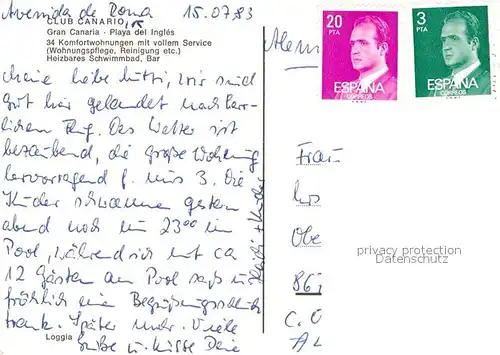 Avenida de Roma 15.07.83
CLUB CANARIO, 15
Gran Canaria - Playa del Inglés
34 Komfortwohnungen mit vollem Service
(Wohnungspflege, Reinigung etc.)
Heizbares Schwimmbad, Bar
Meine liebe Mutti, wir sind
gut hier gelandet nach herr-
lichem Flug. Das Wetter ist
bezaubernd, die große Wohnung
hervorragend f. uns 3. Die
Kinder schwammen gestern
abend noch um 23⁰⁰ im
Pool, während ich mit ca
12 Gästen am Pool saß und
fröhlich eine Begrüßungsschluck
trank. Später mehr. Viele
Grüße u. Küsse Deine
Heidi + Kinder
Loggia
20
PTA
ESPAÑA
CORREOS
3
PTA
ESPAÑA
CORREOS
Alem
Frau
Obe
privacy protection
Datenschutz
867
C. O
A L